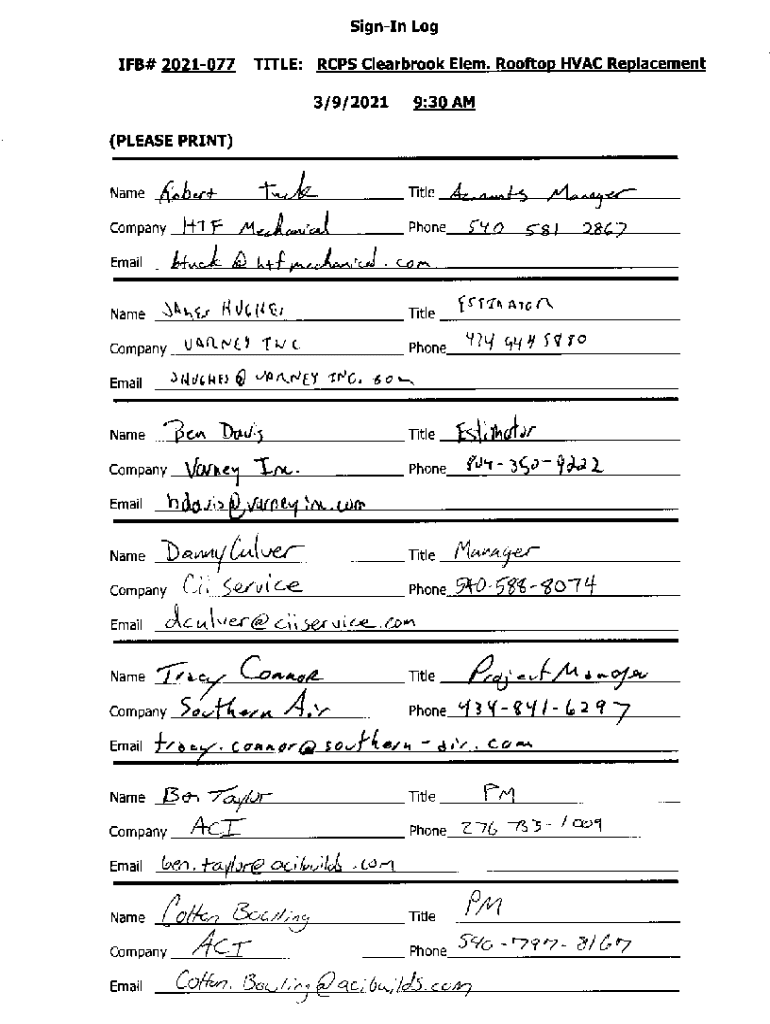 Sign-In Log
IFB# 2021-077 TITLE: RCPS Clearbrook Elem. Rooftop HVAC Replacement
3/9/2021 9:30 AM
(PLEASE PRINT)
Name Robert Tuck Title Accounts Manager
Company HTF Mechanical Phone 540 581 2867
Email btuck@htfmechanical.com
Name James HUGHES Title ESTIMATOR
Company VARNEY INC Phone 434 944 5880
Email JHUGHES@VARNEY INC. COM
Name Ben Davis Title Estimator
Company Varney Inc. Phone 804-350-9222
Email bdavis@varneyinc.com
Name Danny Culver Title Manager
Company Cii Service Phone 540-588-8074
Email dculver@ciiservice.com
Name Tracy Connor Title Project Manager
Company Southern Air Phone 434-841-6297
Email tracy.connor@southern-air.com
Name Ben Taylor Title PM
Company ACI Phone 276 733-1009
Email ben.taylor@acibuilds.com
Name Colten Bowling Title PM
Company ACI Phone 540-797-3167
Email Colten.Bowling@acibuilds.com